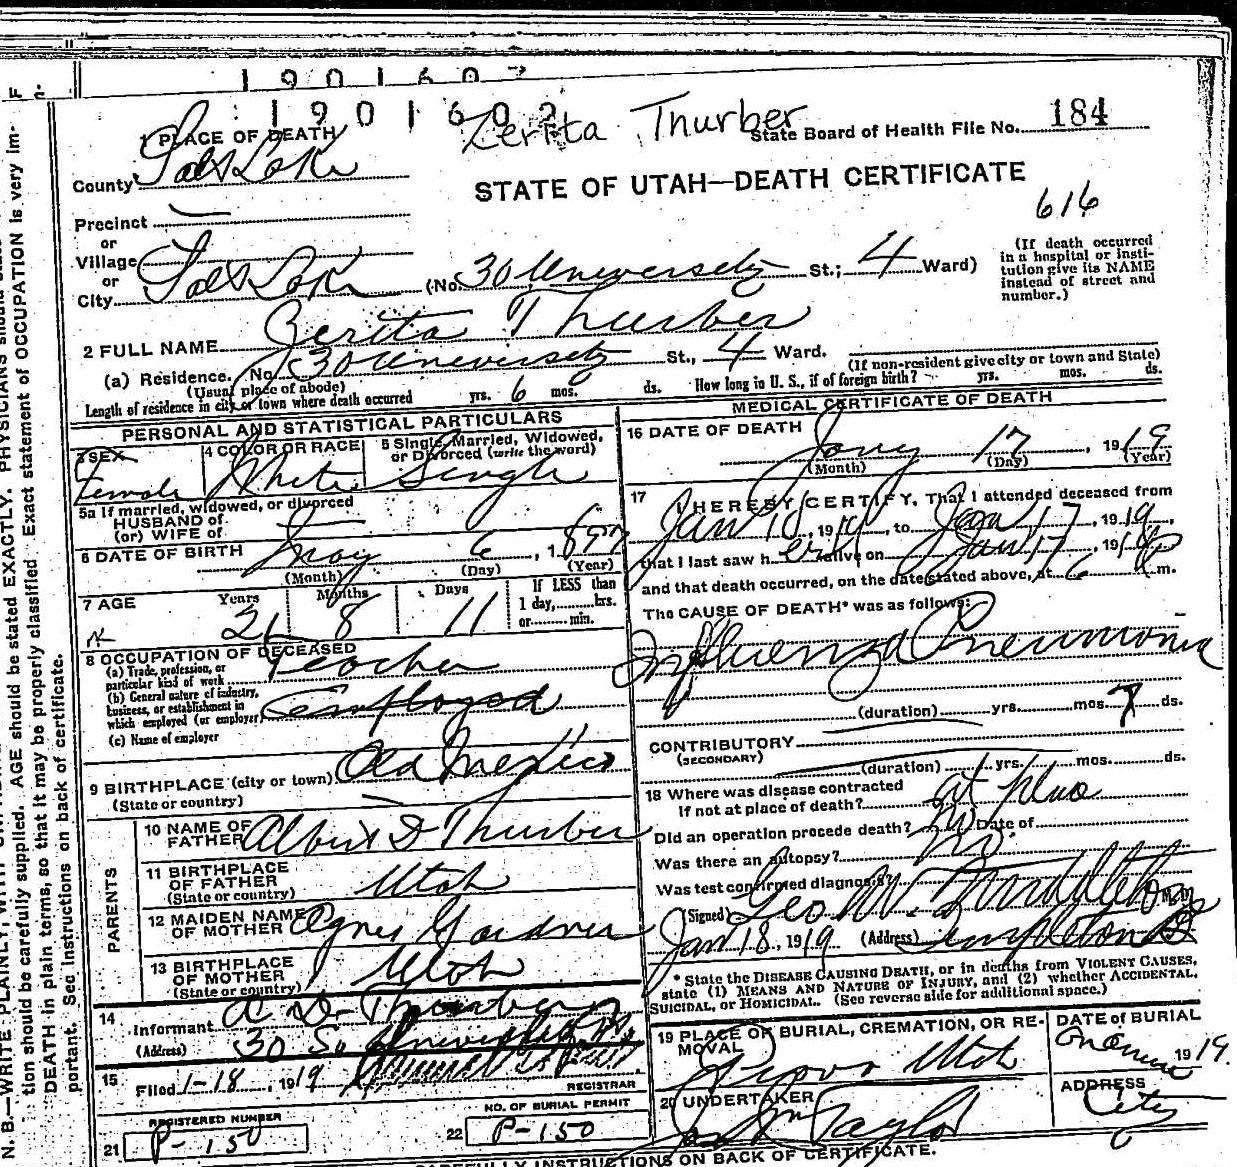 1901602
1901602
Zerita Thurber
1 PLACE OF DEATH
State Board of Health File No. 184
County Salt Lake
STATE OF UTAH—DEATH CERTIFICATE
616
Precinct
or
Village
or
City Salt Lake (No. 30 University St.; 4 Ward)
(If death occurred in a hospital or institution give its NAME instead of street and number.)
2 FULL NAME Zerita Thurber
(a) Residence. No. 30 University St., 4 Ward.
(Usual place of abode)
(If non-resident give city or town and State)
Length of residence in city or town where death occurred yrs. 6 mos. ds. How long in U. S., if of foreign birth? yrs. mos. ds.
PERSONAL AND STATISTICAL PARTICULARS
3 SEX Female
4 COLOR OR RACE White
5 Single, Married, Widowed, or Divorced (write the word) Single
5a If married, widowed, or divorced
HUSBAND of
(or) WIFE of
6 DATE OF BIRTH May 6, 1897
(Month) (Day) (Year)
7 AGE Years 21 Months 8 Days 11
If LESS than
1 day, hrs.
or min.
8 OCCUPATION OF DECEASED
(a) Trade, profession, or particular kind of work Teacher
(b) General nature of industry, business, or establishment in which employed (or employer) Employed
(c) Name of employer
9 BIRTHPLACE (city or town) Old Mexico
(State or country)
PARENTS
10 NAME OF FATHER Albert D Thurber
11 BIRTHPLACE OF FATHER Utah
(State or country)
12 MAIDEN NAME OF MOTHER Agnes Gardner
13 BIRTHPLACE OF MOTHER Utah
(State or country)
14 Informant A. D. Thurber
(Address) 30 So University
15 Filed 1-18, 1919
REGISTRAR
REGISTERED NUMBER
21 P-150
NO. OF BURIAL PERMIT
22 P-150
MEDICAL CERTIFICATE OF DEATH
16 DATE OF DEATH Jany 17, 1919
(Month) (Day) (Year)
17 I HEREBY CERTIFY, That I attended deceased from
Jan 10, 1919, to Jan 17, 1919,
that I last saw her alive on Jan 17, 1919
and that death occurred, on the date stated above, at 6 m.
The CAUSE OF DEATH* was as follows:
Influenza Pneumonia
(duration) yrs. mos. 7 ds.
CONTRIBUTORY
(SECONDARY)
(duration) yrs. mos. ds.
18 Where was disease contracted
If not at place of death? at place
Did an operation precede death? No Date of
Was there an autopsy? No.
Was test confirmed diagnosis?
(Signed) Geo W.
Jan 18, 1919 (Address) Templeton B
* State the DISEASE CAUSING DEATH, or in deaths from VIOLENT CAUSES, state (1) MEANS AND NATURE OF INJURY, and (2) whether ACCIDENTAL, SUICIDAL, OR HOMICIDAL. (See reverse side for additional space.)
19 PLACE OF BURIAL, CREMATION, OR REMOVAL Provo Utah
DATE OF BURIAL 1919.
20 UNDERTAKER Taylor
ADDRESS City
CAREFULLY INSTRUCTIONS ON BACK OF CERTIFICATE.
N. B.—WRITE PLAINLY, WITH
tion should be carefully supplied. AGE should be stated EXACTLY. PHYSICIANS should
DEATH in plain terms, so that it may be properly classified. Exact statement of OCCUPATION is very im-
portant. See instructions on back of certificate.